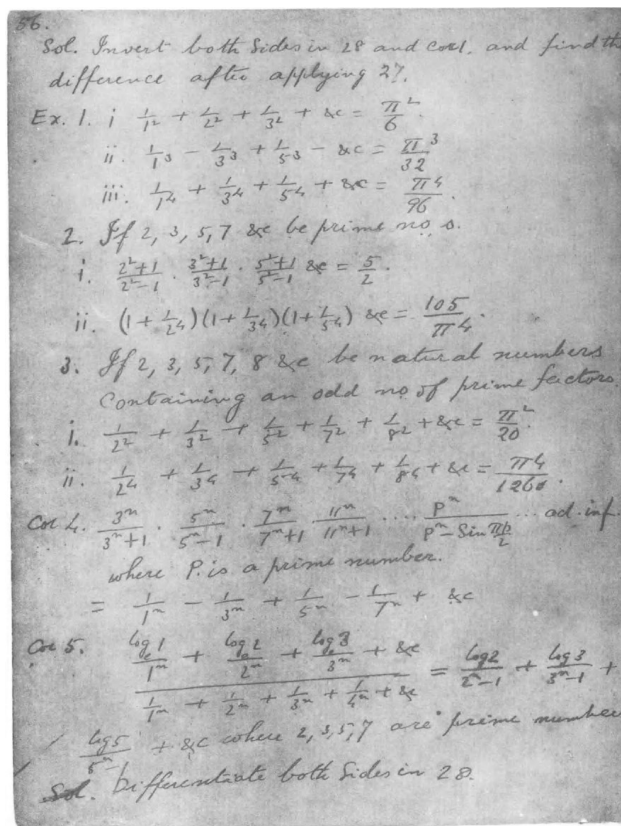 56.
Sol. Invert both sides in 28 and cor 1. and find the
difference after applying 27.
Ex. 1. i 1/1² + 1/2² + 1/3² + &c = π²/6
ii. 1/1³ − 1/3³ + 1/5³ − &c = π³/32
iii. 1/1⁴ + 1/3⁴ + 1/5⁴ + &c = π⁴/96.
2. If 2, 3, 5, 7 &c be prime nos.
i. (2²+1)/(2²−1) · (3²+1)/(3²−1) · (5²+1)/(5²−1) &c = 5/2.
ii. (1 + 1/2⁴)(1 + 1/3⁴)(1 + 1/5⁴) &c = 105/π⁴.
3. If 2, 3, 5, 7, 8 &c be natural numbers
containing an odd no of prime factors.
i. 1/2² + 1/3² + 1/5² + 1/7² + 1/8² + &c = π²/20.
ii. 1/2⁴ + 1/3⁴ + 1/5⁴ + 1/7⁴ + 1/8⁴ + &c = π⁴/1260.
Cor 4. 3ⁿ/(3ⁿ+1) · 5ⁿ/(5ⁿ−1) · 7ⁿ/(7ⁿ+1) · 11ⁿ/(11ⁿ+1) .... Pⁿ/(Pⁿ − Sin πp/2) ... ad. inf.
where P. is a prime number.
= 1/1ⁿ − 1/3ⁿ + 1/5ⁿ − 1/7ⁿ + &c
Cor 5. (logₑ1/1ⁿ + logₑ2/2ⁿ + logₑ3/3ⁿ + &c)/(1/1ⁿ + 1/2ⁿ + 1/3ⁿ + 1/4ⁿ + &c) = log2/(2ⁿ−1) + log3/(3ⁿ−1) +
log5/(5ⁿ−1) + &c where 2, 3, 5, 7 are prime number
Sol. Differentiate both sides in 28.